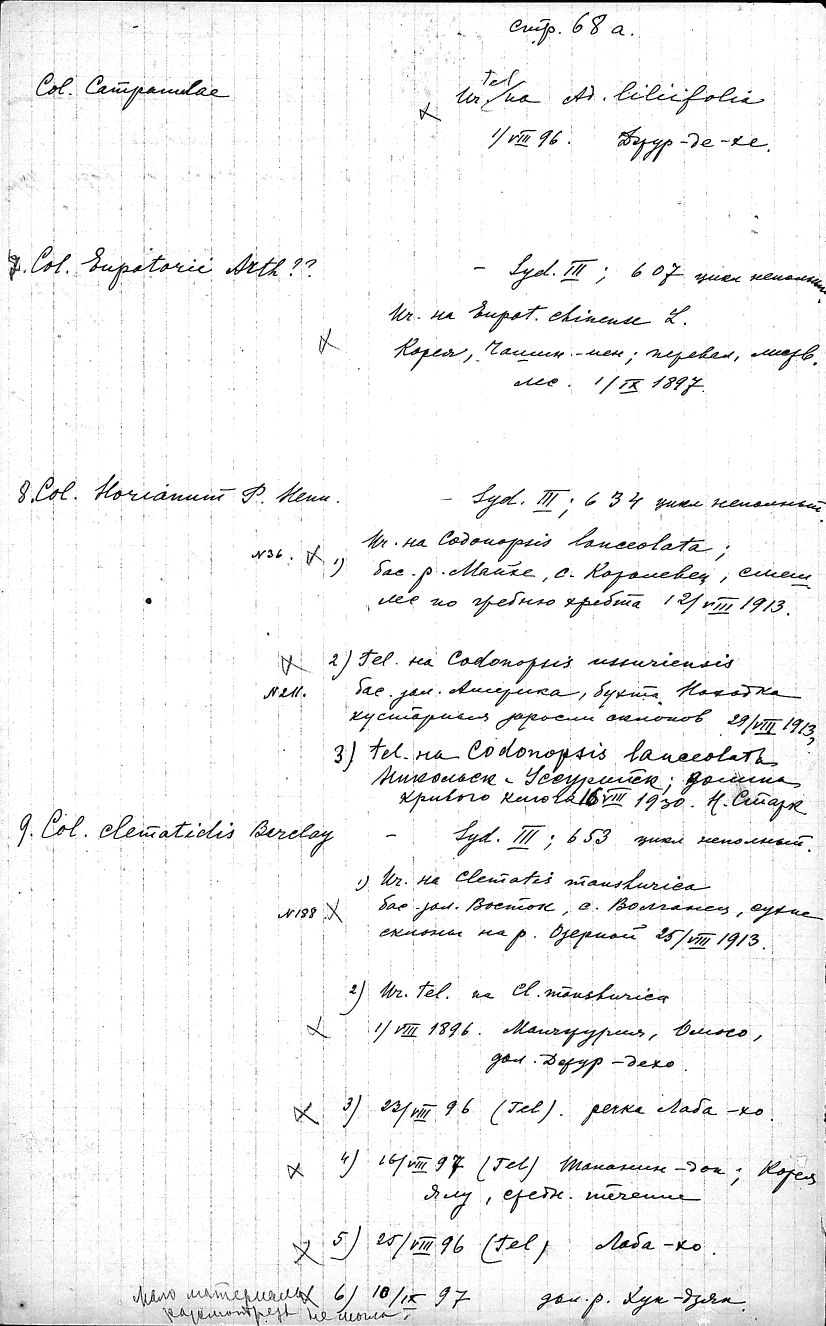 стр. 68 а.
Col. Campanulae
Ur. tel на Ad. liliifolia
1/VIII 96. Дзур-де-хе.
7. Col. Eupatorii Arth??
- Syd. III; 607 цикл неполный.
Ur. на Eupat. chinense L.
Корея, перевал, листв.
лес. 1/IX 1897.
8. Col. Horianum P. Henn.
- Syd. III; 634 цикл неполный.
N36. X 1) Ur. на Codonopsis lanceolata;
бас. р. Майхе, с. Королевец, смеш
лес по гребню хребта 12/VIII 1913.
X 2) Tel. на Codonopsis ussuriensis
N211. бас. зал. Америка, бухта Находка
кустарныя заросли склонов 29/VIII 1913?
3) tel. на Codonopsis lanceolata
Никольск-Уссурийск; долина
кривого ключа 16 VIII 1930. Н. Старк
9. Col. clematidis Barclay
- Syd. III; 653 цикл неполный.
1) Ur. на Clematis manshurica
N188 X бас. зал. Восток, с. Волчанец, сухие
склоны на р. Озерной 25/VIII 1913.
2) Ur. tel. на Cl. manshurica
X 1/VIII 1896. Манчжурия, Омосо,
дол. Дзур-дехо.
X 3) 23/VIII 96 (Tel). речка Лаба-хо.
X 4) 16/VIII 97 (Tel) Корея
Ялу, средн. течение
X 5) 25/VIII 96 (Tel) Лаба-хо.
X 6) 10/IX 97 дол. р. Хун-дзян.
Мало материала
рассмотреть не могла